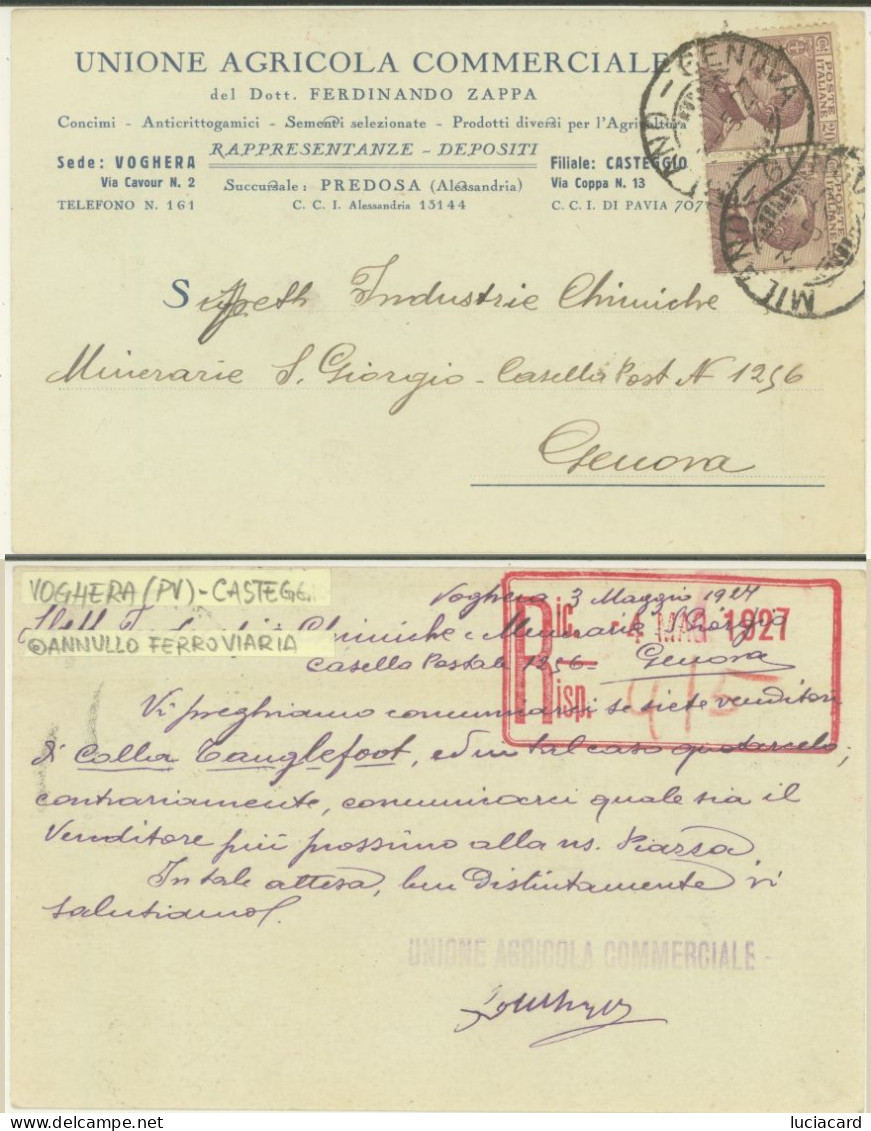 UNIONE AGRICOLA COMMERCIALE
del Dott. FERDINANDO ZAPPA
Concimi - Anticrittogamici - Sementi selezionate - Prodotti diversi per l'Agricoltura
RAPPRESENTANZE - DEPOSITI
Sede: VOGHERA
Via Cavour N. 2
TELEFONO N. 161
Succursale: PREDOSA (Alessandria)
C. C. I. Alessandria 15144
Filiale: CASTEGGIO
Via Coppa N. 13
C. C. I. DI PAVIA 707
POSTE ITALIANE
GENOVA
MILANO
Industrie Chimiche
Minerarie S. Giorgio - Casella Post N 1256
Genova
VOGHERA (PV) - CASTEGG
ANNULLO FERROVIARIA
Voghera 3 Maggio 1927
Chimiche e Minerarie S. Giorgio
Casella Postale 1256 - Genova
Ric. - 4 MAG 1927
Risp.
Vi preghiamo comunicarci se siete venditori
di Colla Tanglefoot, ed in tal caso quotarcelo;
contrariamente, comunicarci quale sia il
Venditore più prossimo alla ns. Piazza
In tale attesa, ben Distintamente vi
salutiamo.
UNIONE AGRICOLA COMMERCIALE
www.delcampe.net
luciacard